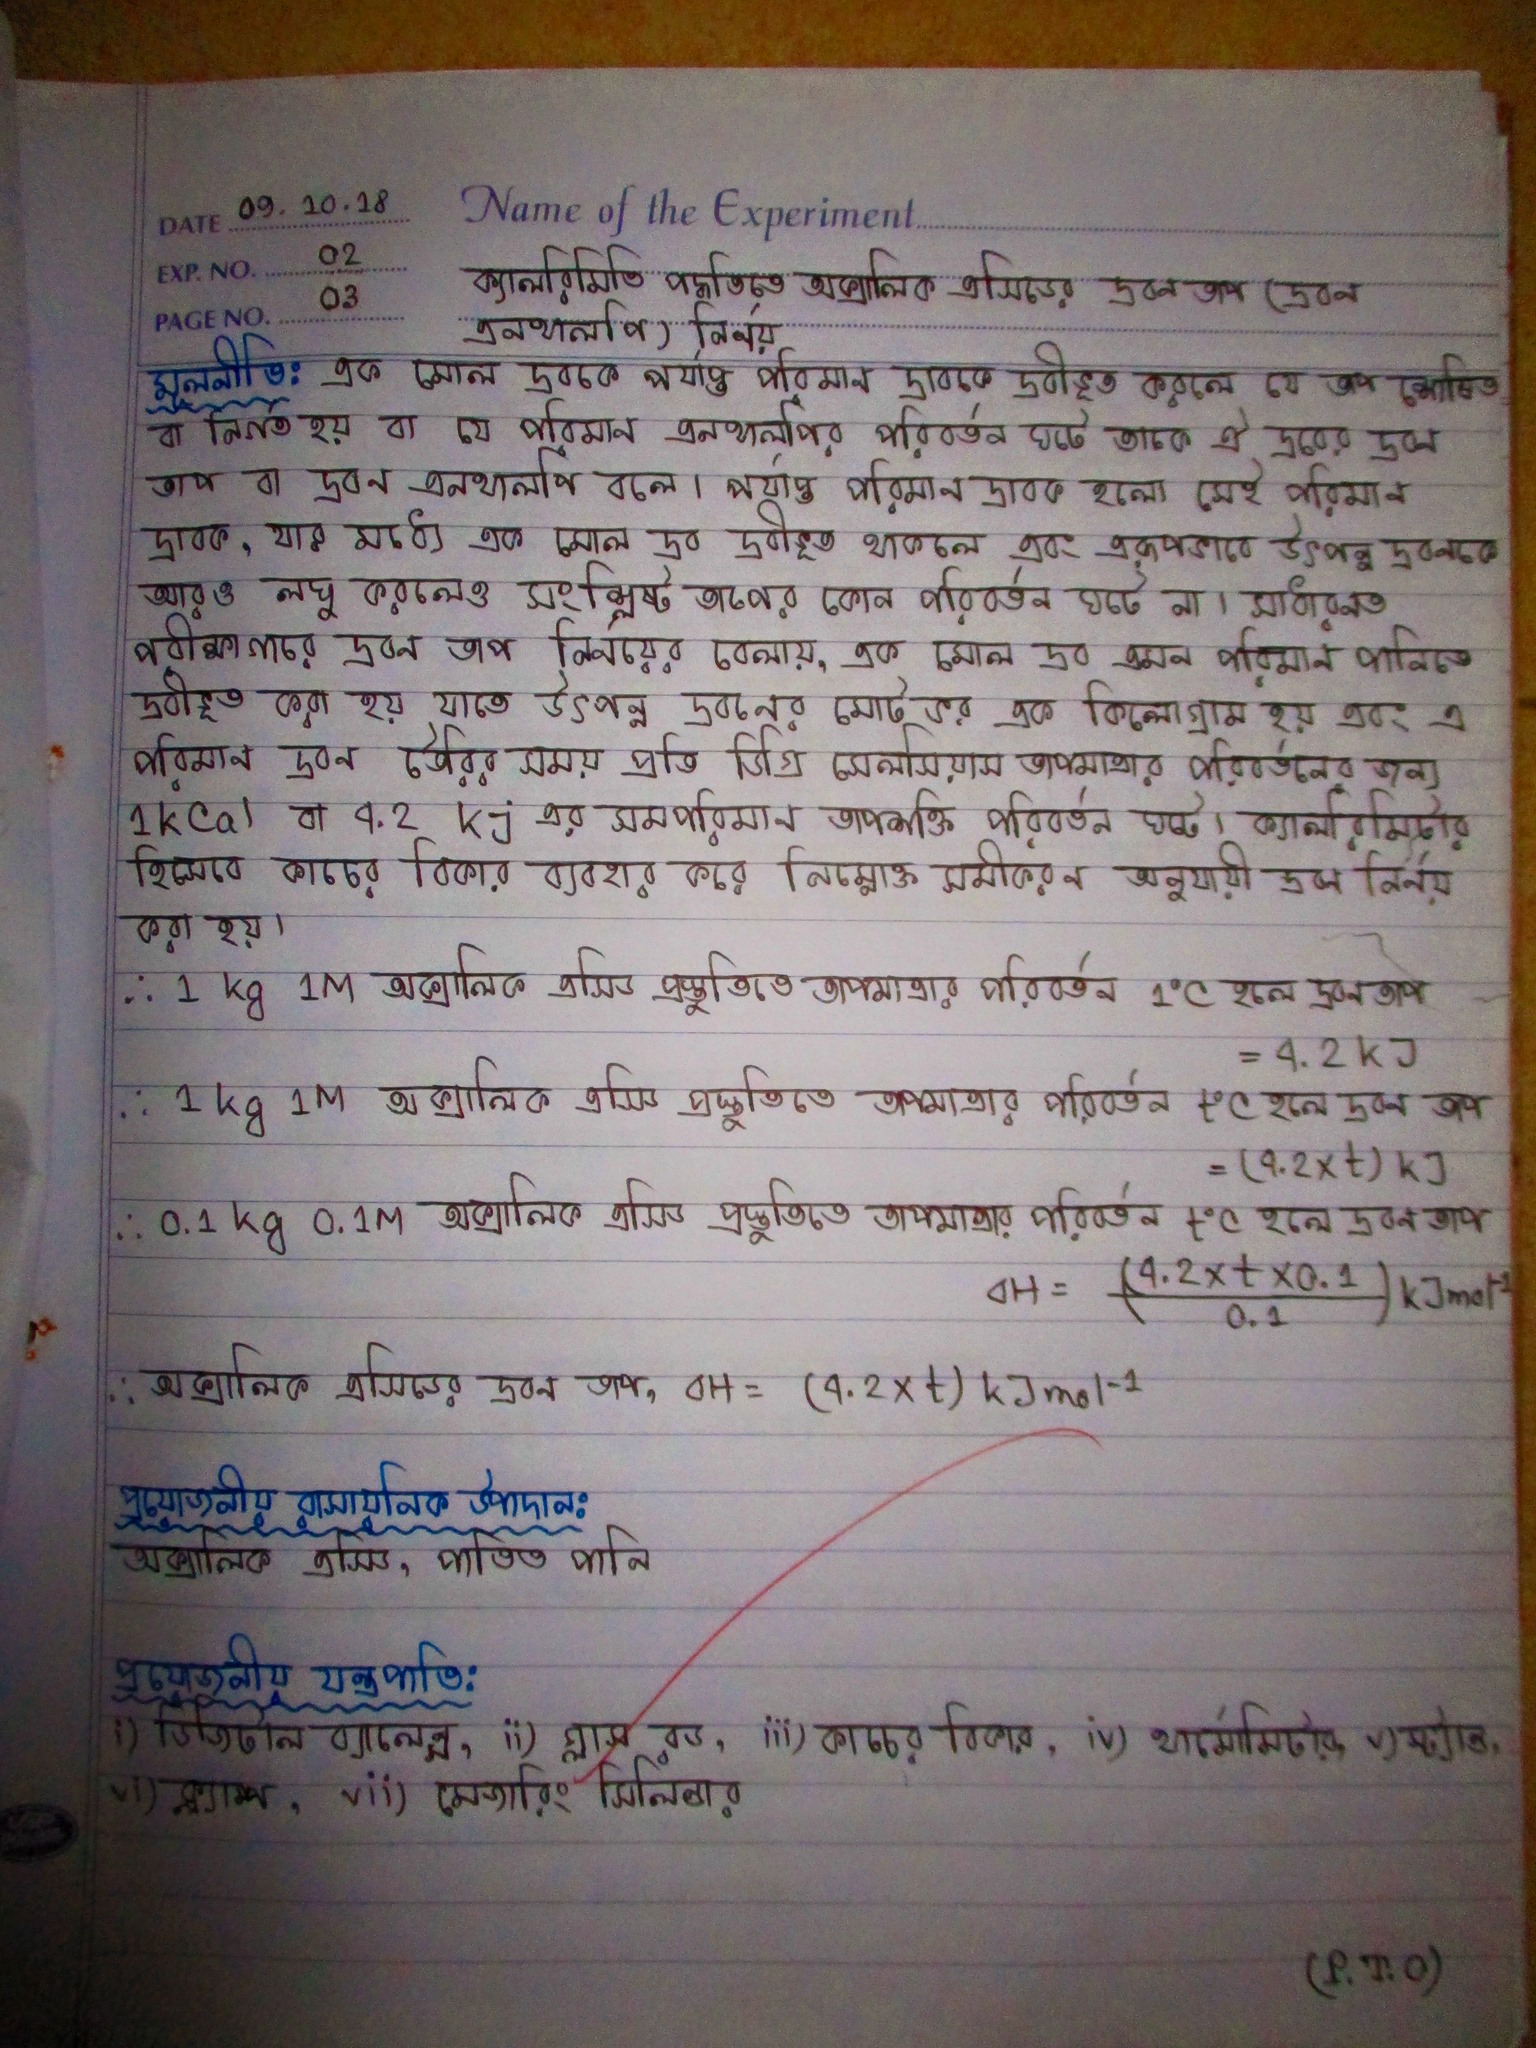 DATE 09.10.18 Name of the Experiment
EXP. NO. 02
PAGE NO. 03
ক্যালরিমিতি পদ্ধতিতে অক্সালিক এসিডের দ্রবন তাপ (দ্রবন
এনথালপি) নির্নয়
মূলনীতি: এক মোল দ্রবকে পর্যাপ্ত পরিমান দ্রাবকে দ্রবীভূত করলে যে তাপ শোষিত
বা নির্গত হয় বা যে পরিমান এনথালপির পরিবর্তন ঘটে তাকে ঐ দ্রবের দ্রবন
তাপ বা দ্রবন এনথালপি বলে। পর্যাপ্ত পরিমান দ্রাবক হলো সেই পরিমান
দ্রাবক, যার মধ্যে এক মোল দ্রব দ্রবীভূত থাকলে এবং এরূপভাবে উৎপন্ন দ্রবনকে
আরও লঘু করলেও সংশ্লিষ্ট তাপের কোন পরিবর্তন ঘটে না। সাধারনত
পরীক্ষাগারে দ্রবন তাপ নির্নয়ের বেলায়, এক মোল দ্রব এমন পরিমান পানিতে
দ্রবীভূত করা হয় যাতে উৎপন্ন দ্রবনের মোট ভর এক কিলোগ্রাম হয় এবং এ
পরিমান দ্রবন তৈরির সময় প্রতি ডিগ্রি সেলসিয়াস তাপমাত্রার পরিবর্তনের জন্য
1kCal বা 4.2 kj এর সমপরিমান তাপশক্তি পরিবর্তন ঘটে। ক্যালরিমিটার
হিসেবে কাচের বিকার ব্যবহার করে নিম্নোক্ত সমীকরন অনুযায়ী নির্নয়
করা হয়।
∴ 1 kg 1M অক্সালিক এসিড প্রস্তুতিতে তাপমাত্রার পরিবর্তন 1°C হলে দ্রবন তাপ
= 4.2 kJ
∴ 1 kg 1M অক্সালিক এসিড প্রস্তুতিতে তাপমাত্রার পরিবর্তন t°C হলে দ্রবন তাপ
= (4.2×t) kJ
∴ 0.1 kg 0.1M অক্সালিক এসিড প্রস্তুতিতে তাপমাত্রার পরিবর্তন t°C হলে দ্রবন তাপ
ΔH = (4.2×t×0.1 / 0.1) kJmol⁻¹
∴ অক্সালিক এসিডের দ্রবন তাপ, ΔH = (4.2×t) kJmol⁻¹
প্রয়োজনীয় রাসায়নিক উপাদান:
অক্সালিক এসিড, পাতিত পানি
প্রয়োজনীয় যন্ত্রপাতি:
i) ডিজিটাল ব্যালেন্স, ii) গ্লাস রড, iii) কাচের বিকার, iv) থার্মোমিটার, v) স্ট্যান্ড,
vi) ক্ল্যাম্প, vii) মেজারিং সিলিন্ডার
(P.T.O)